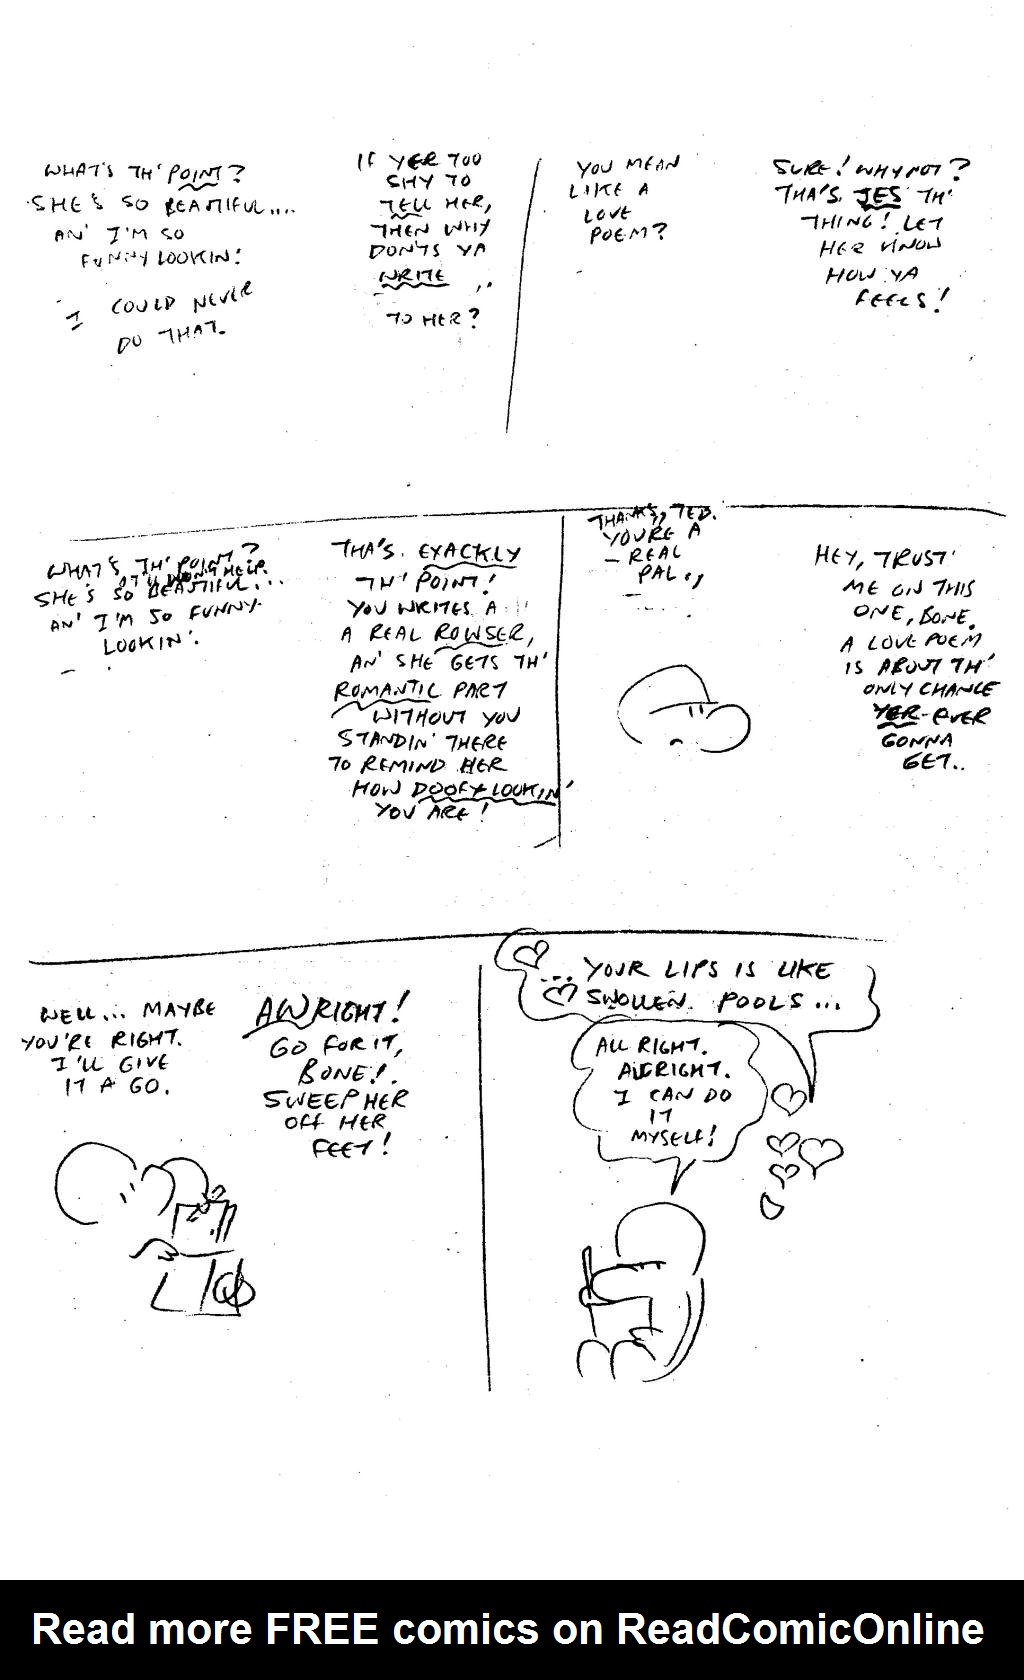 WHAT'S TH' POINT?
SHE'S SO BEAUTIFUL....
AN' I'M SO
FUNNY LOOKIN!
I COULD NEVER
DO THAT.
IF YER TOO
SHY TO
TELL HER,
THEN WHY
DON'TS YA
WRITE
TO HER?
YOU MEAN
LIKE A
LOVE
POEM?
SURE! WHY NOT?
THA'S JES TH'
THING! LET
HER KNOW
HOW YA
FEELS!
WHAT'S TH' POINT?
IT WON'T HELP.
SHE'S SO BEAUTIFUL...
AN' I'M SO FUNNY
LOOKIN'.
THA'S EXACKLY
TH' POINT!
YOU WRITES A
A REAL ROWSER,
AN' SHE GETS TH'
ROMANTIC PART
WITHOUT YOU
STANDIN' THERE
TO REMIND HER
HOW DOOFY LOOKIN'
YOU ARE!
THANKS, TED.
YOU'RE A
REAL
PAL..
HEY, TRUST
ME ON THIS
ONE, BONE.
A LOVE POEM
IS ABOUT TH'
ONLY CHANCE
YER EVER
GONNA
GET..
WELL... MAYBE
YOU'RE RIGHT.
I'LL GIVE
IT A GO.
AWRIGHT!
GO FOR IT,
BONE!.
SWEEP HER
OFF HER
FEET!
... YOUR LIPS IS LIKE
SWOLLEN POOLS...
ALL RIGHT.
ALLRIGHT.
I CAN DO
IT
MYSELF!
Read more FREE comics on ReadComicOnline